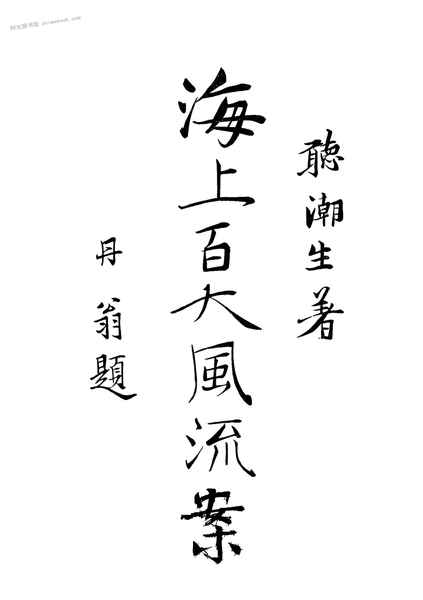 聽潮生著
海上百大風流案
丹翁題